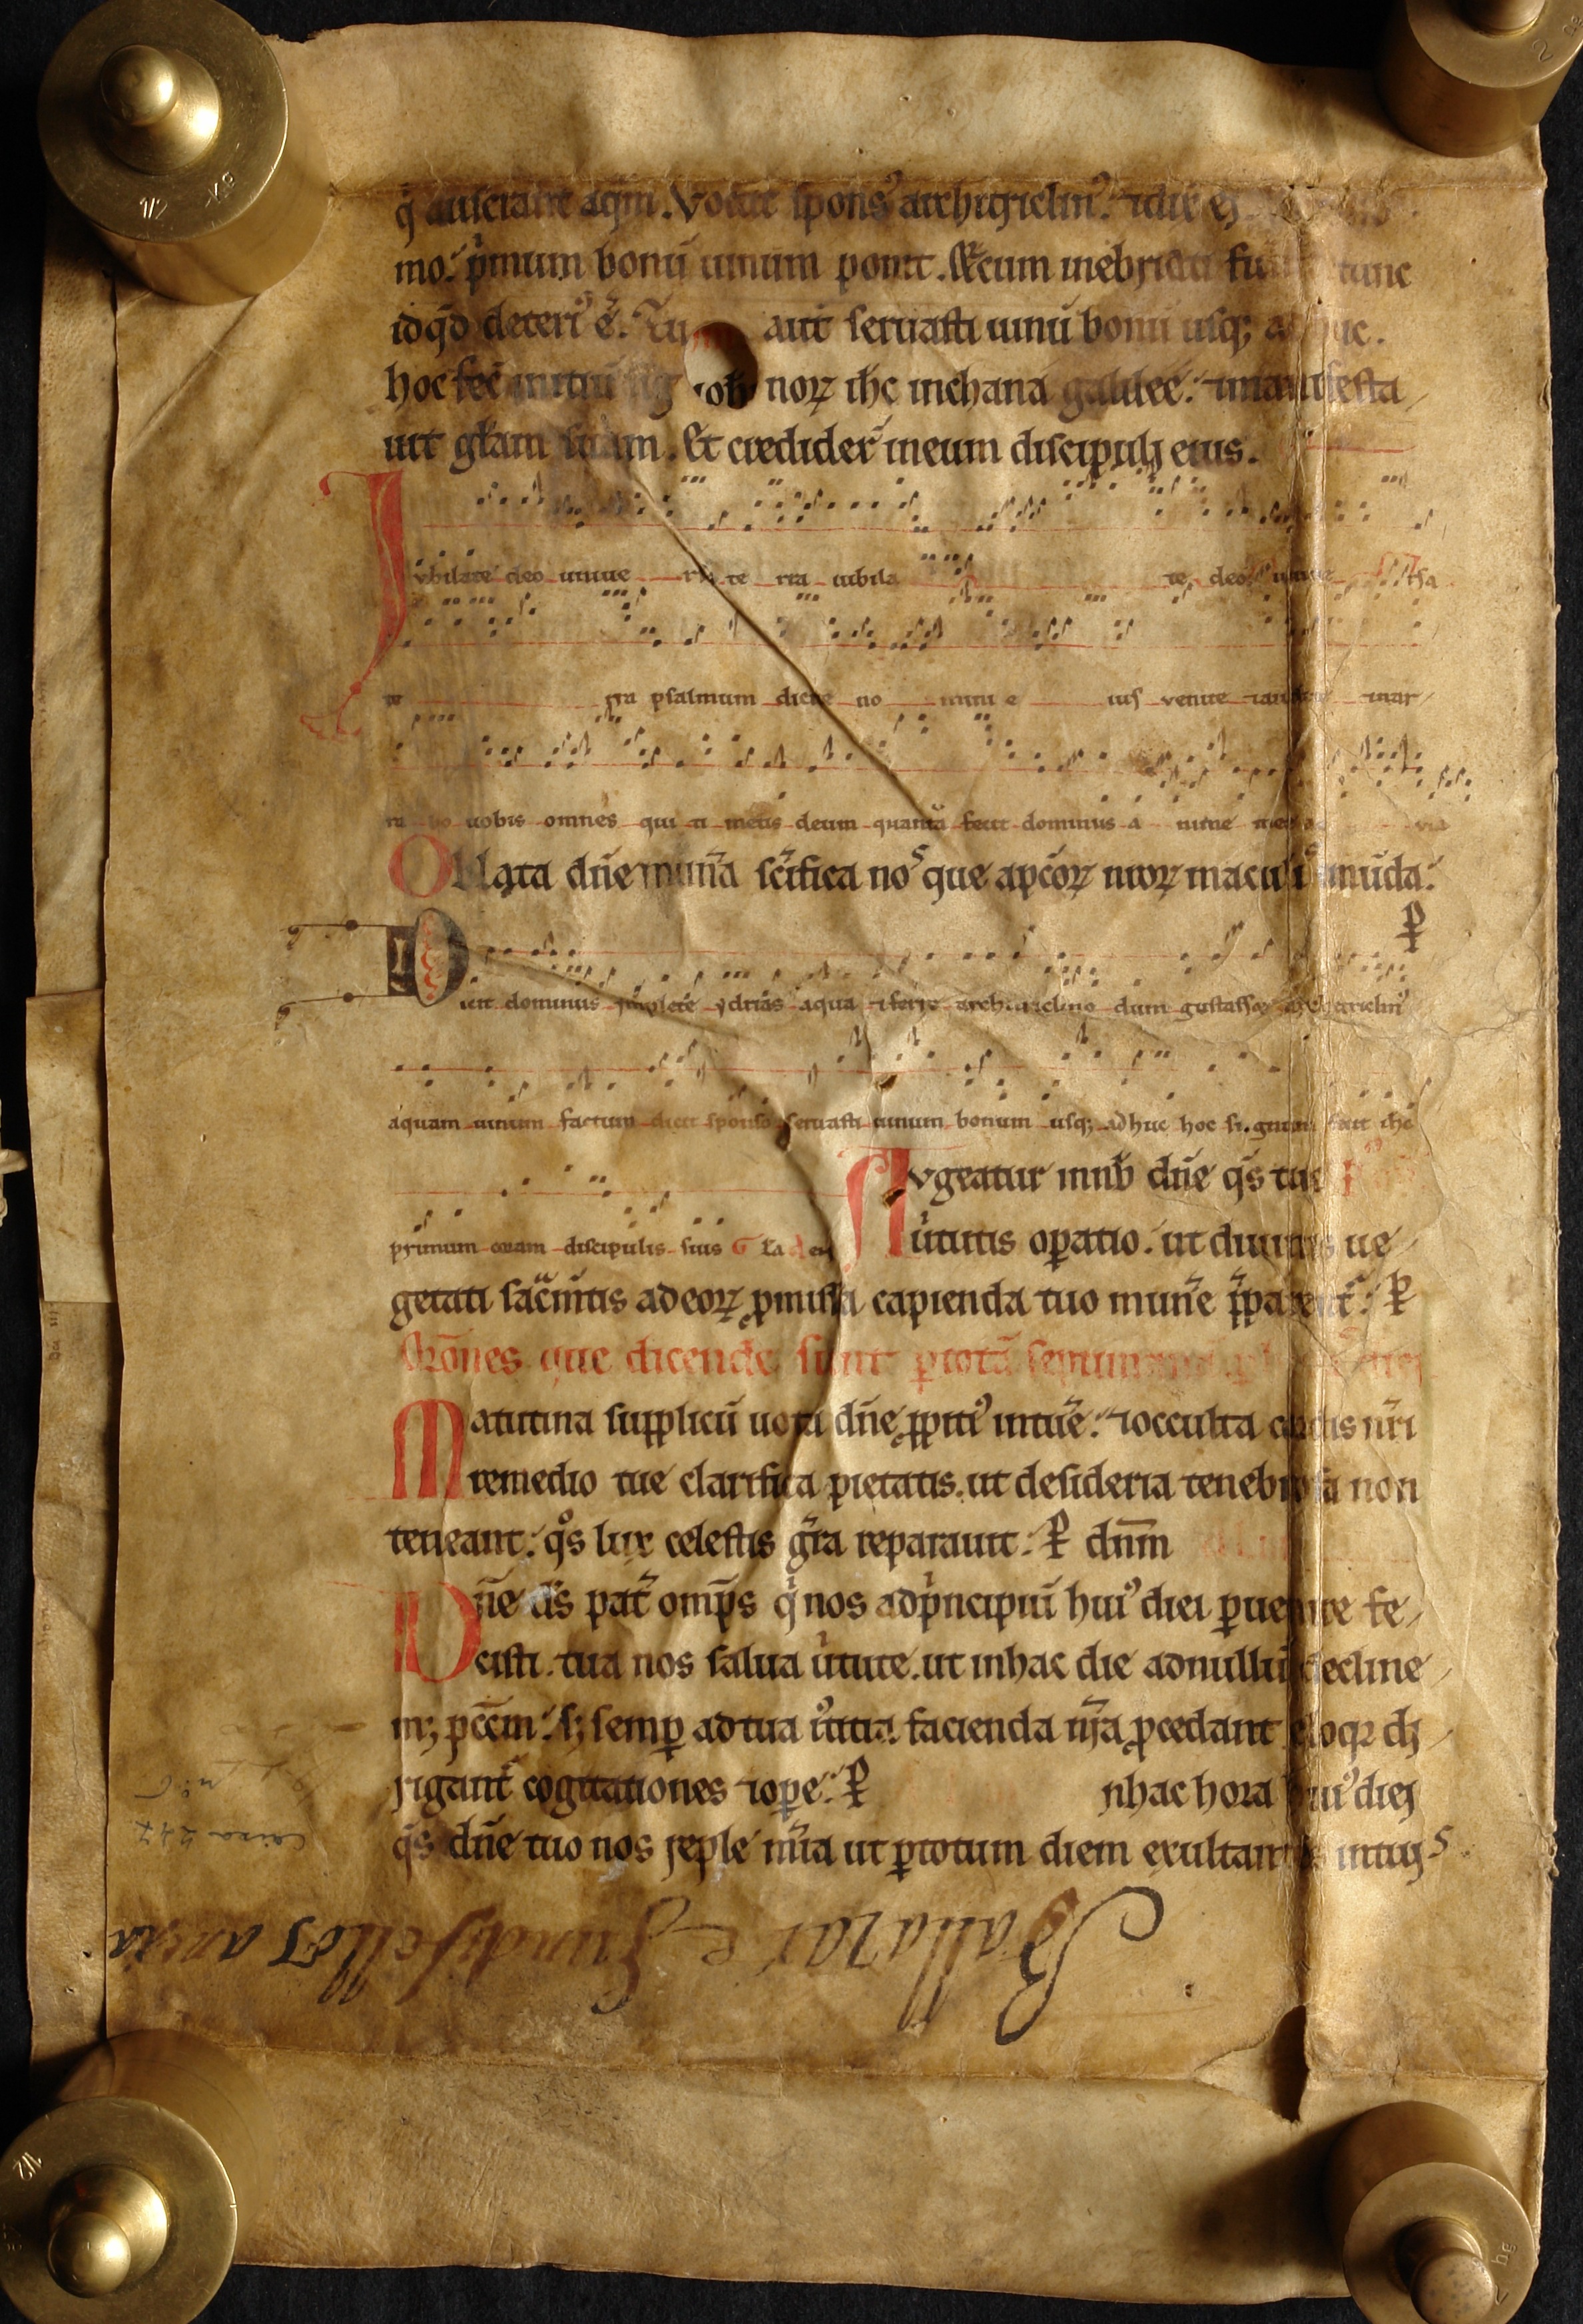 q̇ ausciant aqm̄. Vocat spons᾽ architriclin᾽. ⁊ dix ei
mo. p̍mum bonū uinum ponit. & cum inebriati tunc
id qd̄ deteri᾽ ē. Tu aut̄ seruasti uinū bonū usq; adhuc.
hoc fec̄ initiū sig noꝝ ih̄c inchana galilee. ⁊ manifesta
uit gl̄am suam. Et credider̄ ineum discipuli eius.
Jvbilate deo uniue rsa te rra iubila te deo uniue rsa
te rra psalmum dicite no mini e ius venite ⁊ audite ⁊ nar
ra bo uobis omnes qui ti metis deum quanta fecit dominus a nime mee
OBlata dn̄e mun̄a sc̄ifica nosque apc̄oꝝ nr̄oꝝ maculis emūda.
ꝑ
Dicit dominus implete ydrias aqua ⁊ ferte architriclino dum gustasset architriclin᾽
aquam uinum factum dicit sponso seruasti uinum bonum usq; adhuc hoc si.gnum fecit ih̄c
primum coram discipulis suis G la en
Avgeatur innob̄ dn̄e q̄s tue
u̍tutis oꝑatio. ut diuinis ue
getati sac̄mtis adeoꝝ ꝓmissa capienda tuo mun̄e p̄parent᷑. ꝑ
Or̄ones que dicende sunt ꝑtotā
Matutina supplicū uota dn̄e ꝓpiti᾽ intuē. ⁊ occulta cordis nr̄i
remedio tue clarifica pietatis. ut desideria tenebrosa non
teneant. q̊s lux celestis gr̄a reparauit. ꝑ dn̄m
Dn̄e ds̄ pat̄ omp̄s q̍ nos adp̍ncipiū hui᾽ diei ꝑuenire fe
cisti. tua nos salua u̍tute. ut inhac die adnullū decline
m; pcc̄m. s; semꝑ ad tua iu᾽titia facienda nr̄a ꝓcedant eloq̄ di
rigant᷑ cogitationes ⁊ oꝑe. ꝑ nhac hora hui᾽ diei
q̄s dn̄e tuo nos reple mīa ut ꝑtotum diem exultantes intuis